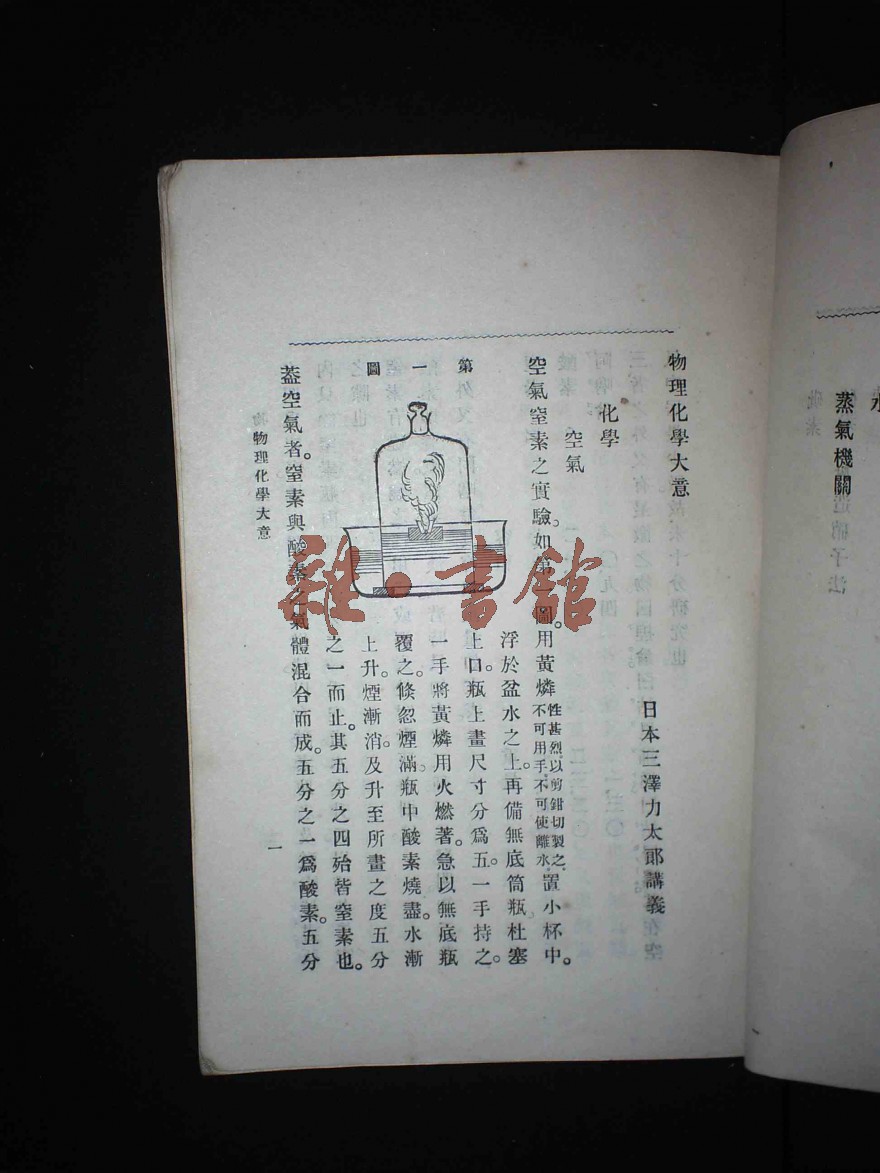 蒸氣機關
物理化學大意
日本三澤力太郎講義
化學
空氣
空氣窒素之實驗。如第一圖。用黃燐性甚烈以剪鉗切製之不可用手不可使離水置小杯中。
浮於盆水之上。再備無底筒瓶杜塞
上口。瓶上畫尺寸分爲五。一手持之。
一手將黃燐用火燃著。急以無底瓶
覆之。倏忽煙滿。瓶中酸素燒盡。水漸
上升。煙漸消。及升至所畫之度五分
之一而止。其五分之四殆皆窒素也。
葢空氣者。窒素與酸素之氣體混合而成。五分之一爲酸素。五分
第一圖
物理化學大意
一
雜·書館